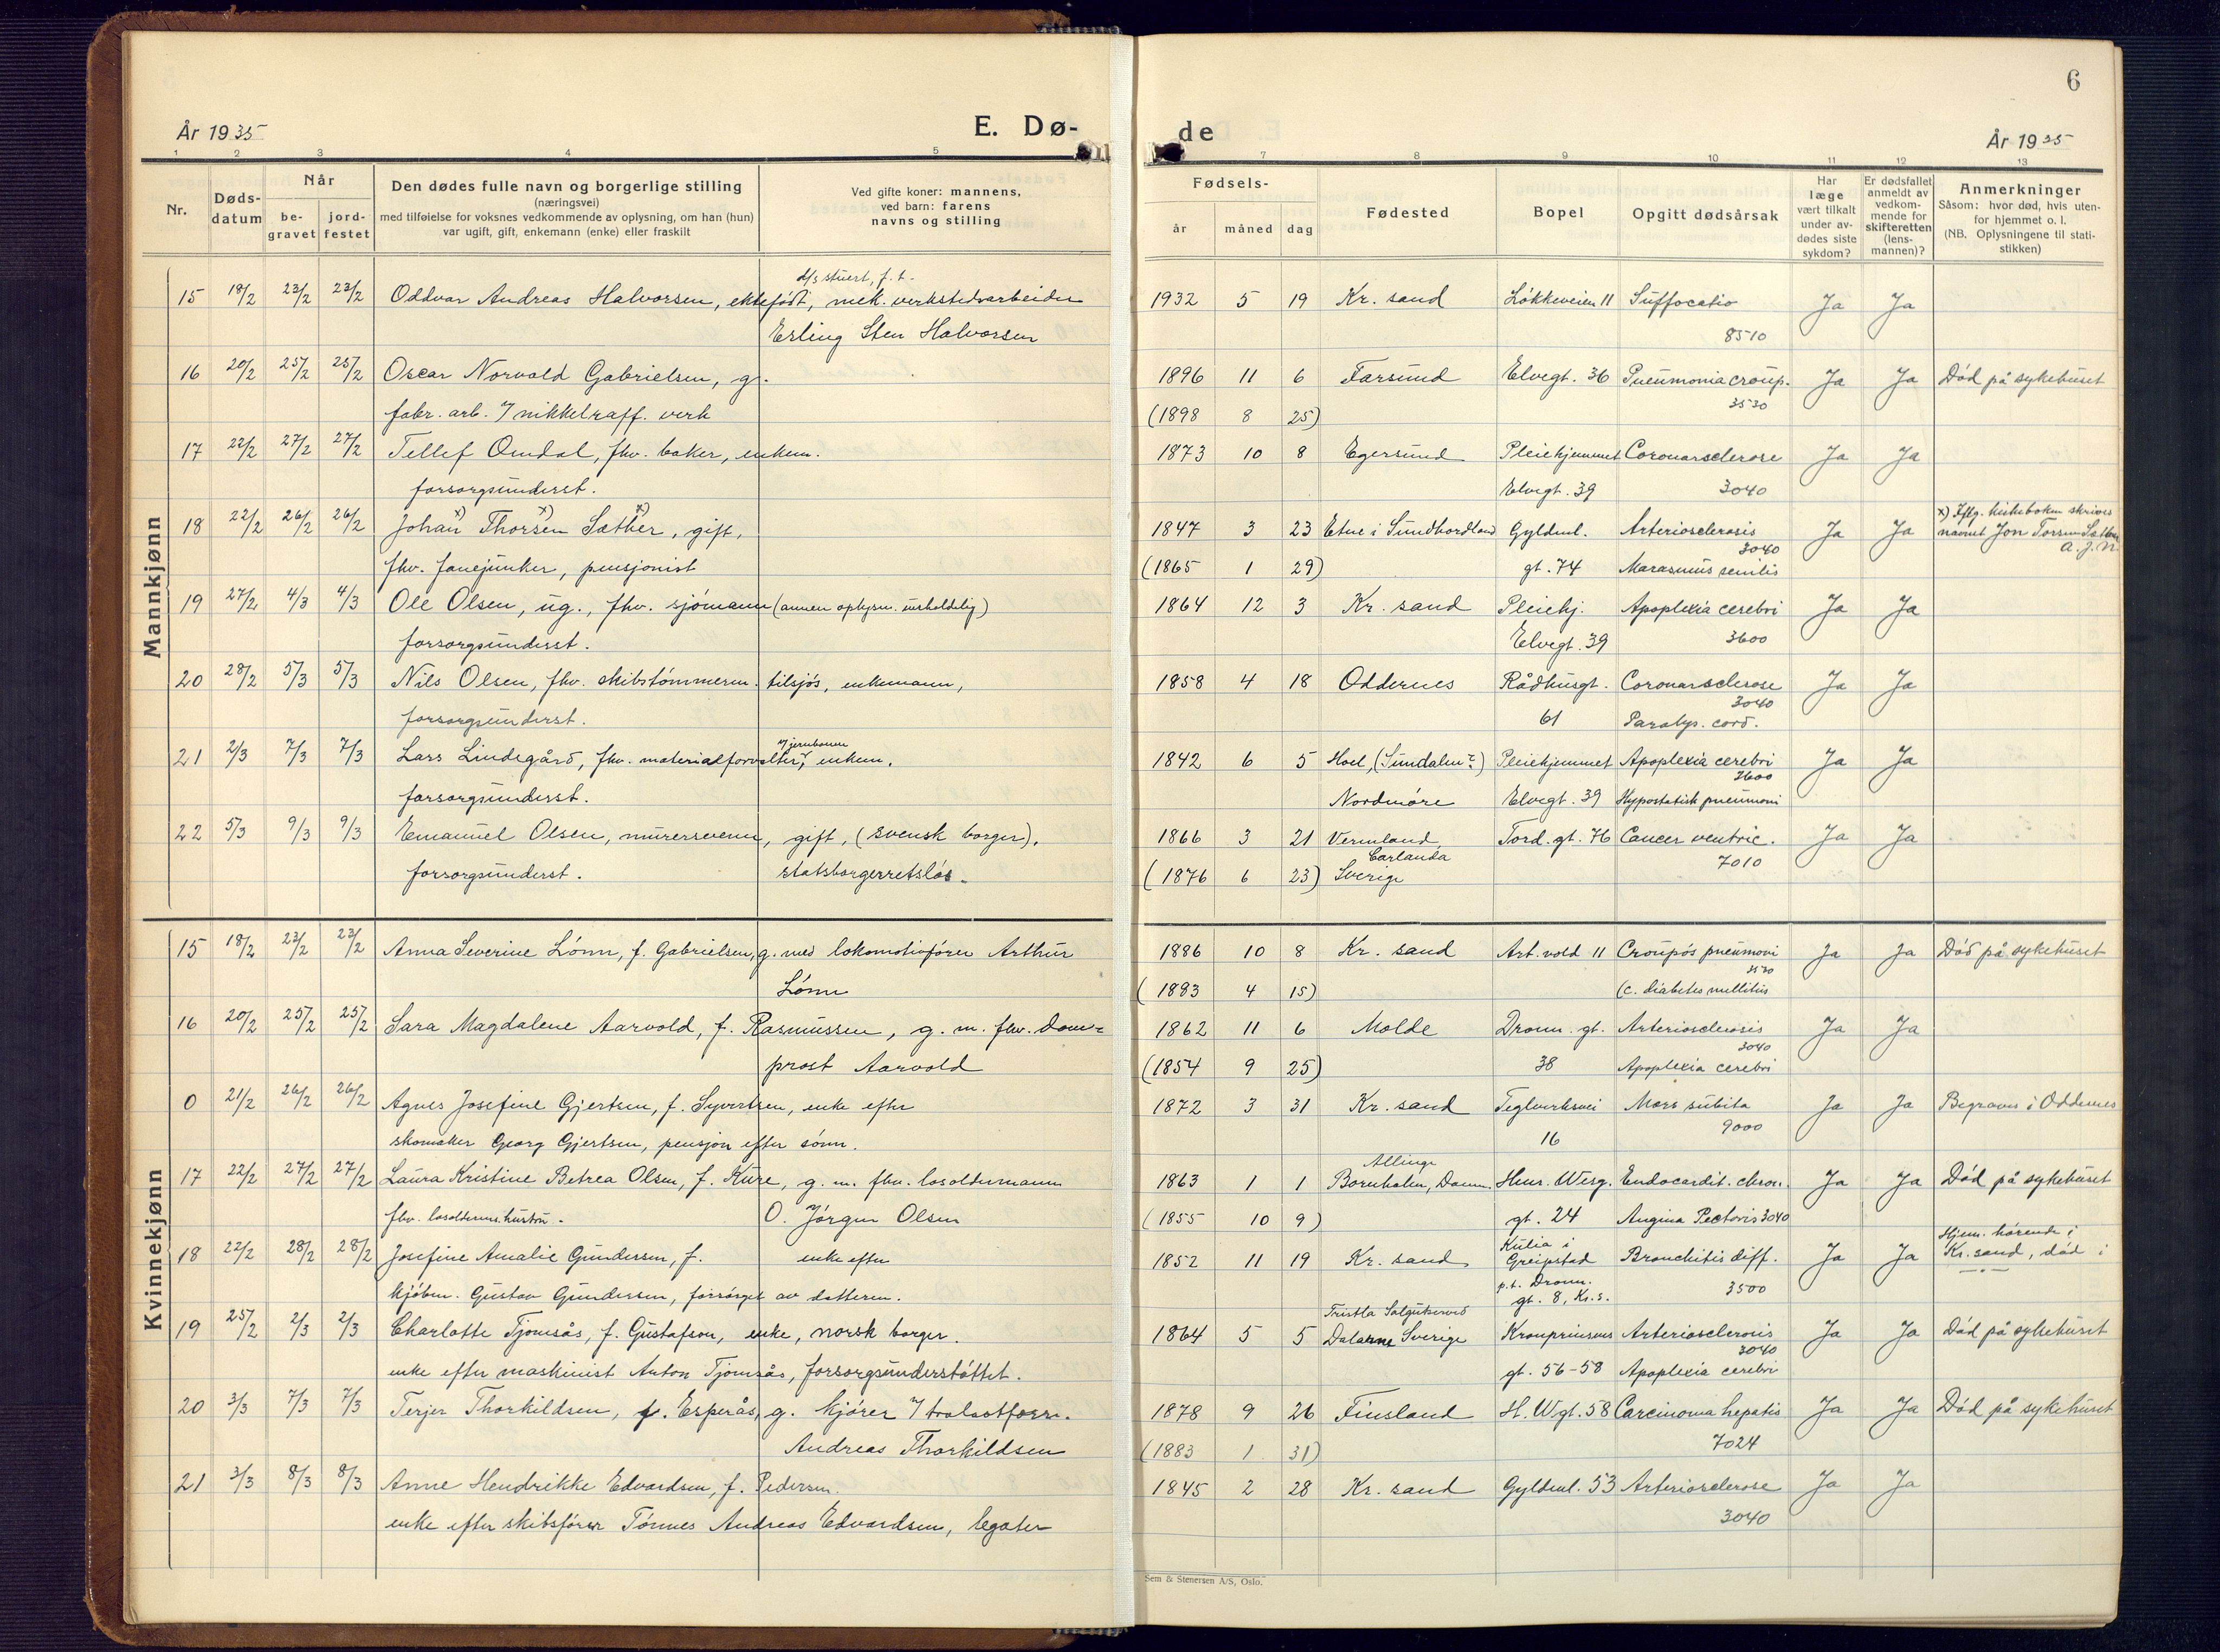 6
År 1935
E. Dø-
de
År 1935
1 2 3 4 5 7 8 9 10 11 12 13
Nr.
Døds-
datum
Når
be-
gravet
jord-
festet
Den dødes fulle navn og borgerlige stilling
(næringsvei)
med tilføielse for voksnes vedkommende av oplysning, om han (hun)
var ugift, gift, enkemann (enke) eller fraskilt
Ved gifte koner: mannens,
ved barn: farens
navns og stilling
Fødsels-
år måned dag
Fødested
Bopel
Opgitt dødsårsak
Har
læge
vært tilkalt
under av-
dødes siste
sykdom?
Er dødsfallet
anmeldt av
vedkom-
mende for
skifteretten
(lens-
mannen)?
Anmerkninger
Såsom: hvor død, hvis uten-
for hjemmet o. l.
(NB. Oplysningene til stati-
stikken)
Mannkjønn
d/s stuert, f. t.
15 18/2 23/2 23/2 Oddvar Andreas Halvorsen, ektefødt, mek. verkstedsarbeider 1932 5 19 Kr. sand Løkkeveien 11 Suffocatio Ja Ja
Erling Sten Halvorsen 8510
16 20/2 25/2 25/2 Oscar Norvald Gabrielsen, g. 1896 11 6 Farsund Elvegt. 36 Pneumonia croup. Ja Ja Død på sykehuset
fabr. arb. v/ nikkelraff. verk (1898 8 25) 3530
17 22/2 27/2 27/2 Tellef Omdal, fhv. baker, enkem. 1873 10 8 Egersund Pleiehjemmet Coronarsclerose Ja Ja
forsorgsunderst. Elvegt. 39 3040
18 22/2 26/2 26/2 Johan x) Thorsen x) Sæther x), gift, 1847 3 23 Etne i Sundhordland Gyldenl. Arteriosclerosis 3040 Ja Ja x) Iflg. kirkeboken skrives
navnet Jon Torsen Sæther
A. J. N.
fhv. fanejunker, pensjonist (1865 1 29) gt. 74 Marasmus senilis
19 27/2 4/3 4/3 Ole Olsen, ug., fhv. sjømann (annen oplysn. uerholdelig) 1864 12 3 Kr. sand Pleiehj. Apoplexia cerebri Ja Ja
forsorgsunderst. Elvegt. 39 3600
20 28/2 5/3 5/3 Nils Olsen, fhv. skibstømmerm. tilsjøs, enkemann, 1858 4 18 Oddernes Rådhusgt. Coronarsclerose 3040 Ja Ja
forsorgsunderst. 61 Paralys. cord.
v/ jernbanen
21 2/3 7/3 7/3 Lars Lindegård, fhv. materialforvalter, enkem. 1842 6 5 Hoel, (Sundalen?) Pleiehjemmet Apoplexia cerebri 3600 Ja Ja
forsorgsunderst. Nordmøre Elvegt. 39 Hypostatisk pneumoni
22 5/3 9/3 9/3 Emanuel Olsen, murersvenn, gift, (svensk borger). 1866 3 21 Vermland, Tord. gt. 76 Cancer ventric. Ja Ja
Carlanda
forsorgsunderst. statsborgerretsløs. (1876 6 23) Sverige 7010
Kvinnekjønn
15 18/2 23/2 23/2 Anna Severine Lønn, f. Gabrielsen, g. med lokomotivfører Arthur 1886 10 8 Kr. sand Art. vold 11 Croupøs pneumoni 3530 Ja Ja Død på sykehuset
Lønn (1883 4 15) (c. diabetes mellitus
16 20/2 25/2 25/2 Sara Magdalene Aarvold, f. Rasmussen, g. m. fhv. dom= 1862 11 6 Molde Dronn. gt. Arteriosclerosis 3040 Ja Ja
prost Aarvold (1854 9 25) 38 Apoplexia cerebri
0 21/2 26/2 26/2 Agnes Josefine Gjertsen, f. Syvertsen, enke efter 1872 3 31 Kr. sand Teglverksvei Mors subita Ja Ja Begraves i Oddernes
skomaker Georg Gjertsen, pensjon efter sønn. 16 9000
Allinge
17 22/2 27/2 27/2 Laura Kristine Betrea Olsen, f. Kure, g. m. fhv. losoldermann 1863 1 1 Bornholm, Danm. Henr. Werg. Endocardit. chron. Ja Ja Død på sykehuset
fhv. losolderms. hustru. O. Jørgen Olsen (1855 10 9) gt. 24 Angina Pectoris 3040
18 22/2 28/2 28/2 Josefine Amalie Gundersen, f. enke efter 1852 11 19 Kr. sand Kulia i Greipstad Bronchitis diff. Ja Ja Hjem. hørende i
Kr. sand, død i
kjøbm. Gustav Gundersen, forsørget av datteren. p.t. Dronn. gt. 8, Kr. s. 3500
19 25/2 2/3 2/3 Charlotte Tjomsås, f. Gustafson, enke, norsk borger. 1864 5 5 Dalarne Sverige Kronprinsens Arteriosclerosis 3040 Ja Ja Død på sykehuset
enke efter maskinist Anton Tjomsås, forsorgsunderstøttet. gt. 56-58 Apoplexia cerebri
20 3/3 7/3 7/3 Terjer Thorkildsen, f. Esperås, g. kjører v/ trelastforr. 1878 9 26 Finsland H. Wgt. 58 Carcinoma hepatis Ja Ja Død på sykehuset
Andreas Thorkildsen (1883 1 31) 7024
21 3/3 8/3 8/3 Anne Hendrikke Edvardsen, f. Pedersen. 1845 2 28 Kr. sand Gyldenl. 53 Arteriosclerose Ja Ja
enke efter skibsfører Tønnes Andreas Edvardsen, legater 3040
Sem & Stenersen A/S, Oslo.